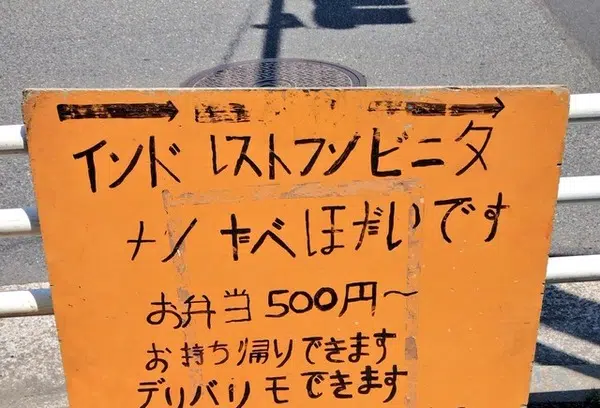 インド レストフソ ビニタ
ナノ だべほだいです
お弁当 500円～
お持ち帰りできます
デリバリモできます